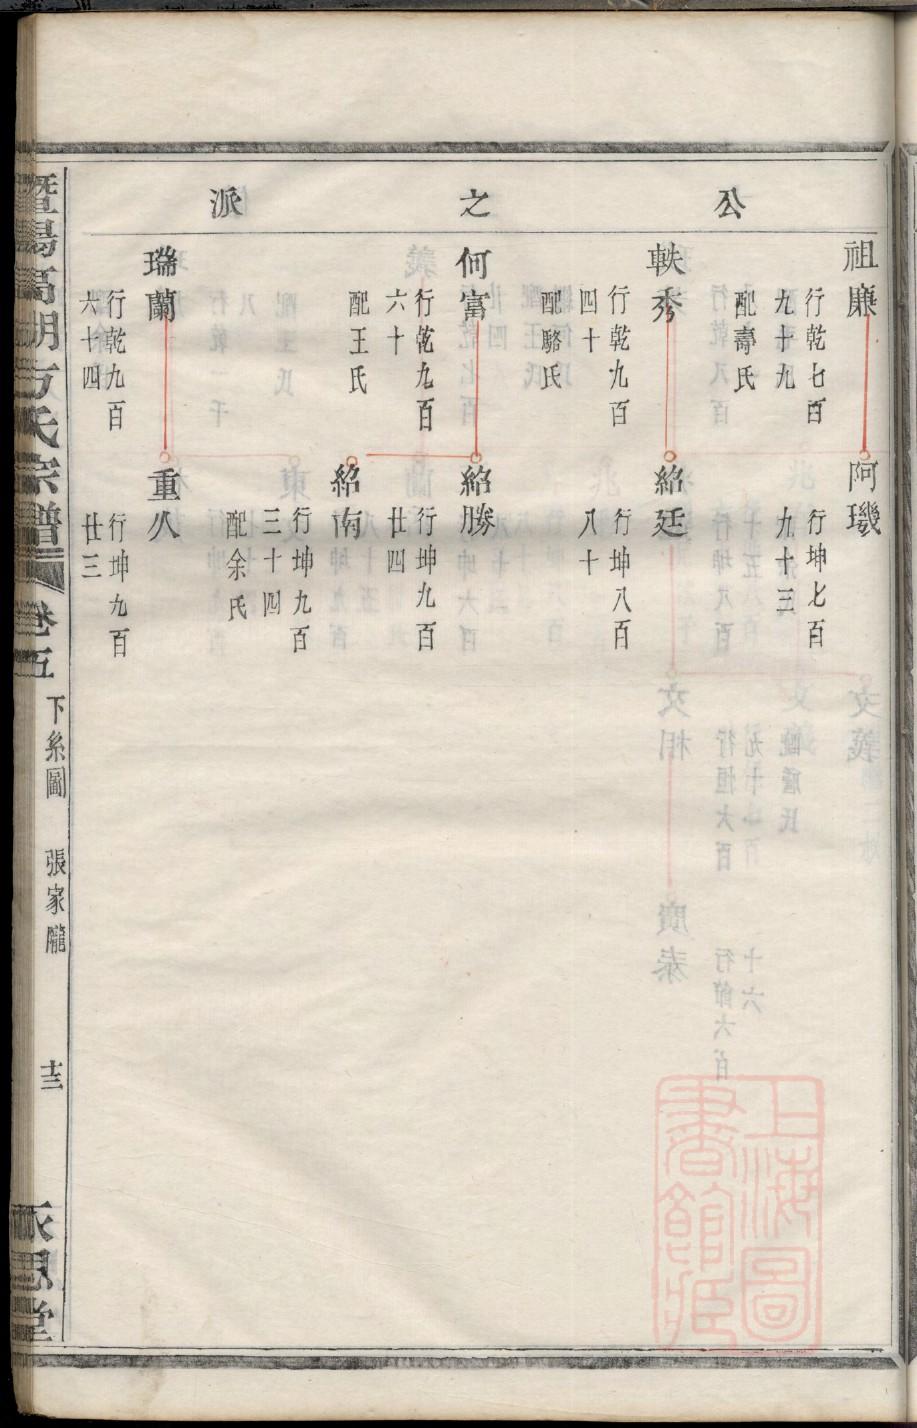 公之派
祖廉
行乾七百
九十九
配壽氏
阿璣
行坤七百
九十三
軼秀
行乾九百
四十
配駱氏
紹廷
行坤八百
八十
何富
行乾九百
六十
配王氏
紹勝
行坤九百
廿四
紹南
行坤九百
三十四
配余氏
瑞蘭
行乾九百
六十四
重八
行坤九百
廿三
暨陽高湖方氏宗譜
卷五
下系圖
張家隴
十三
思堂
上海圖書館藏